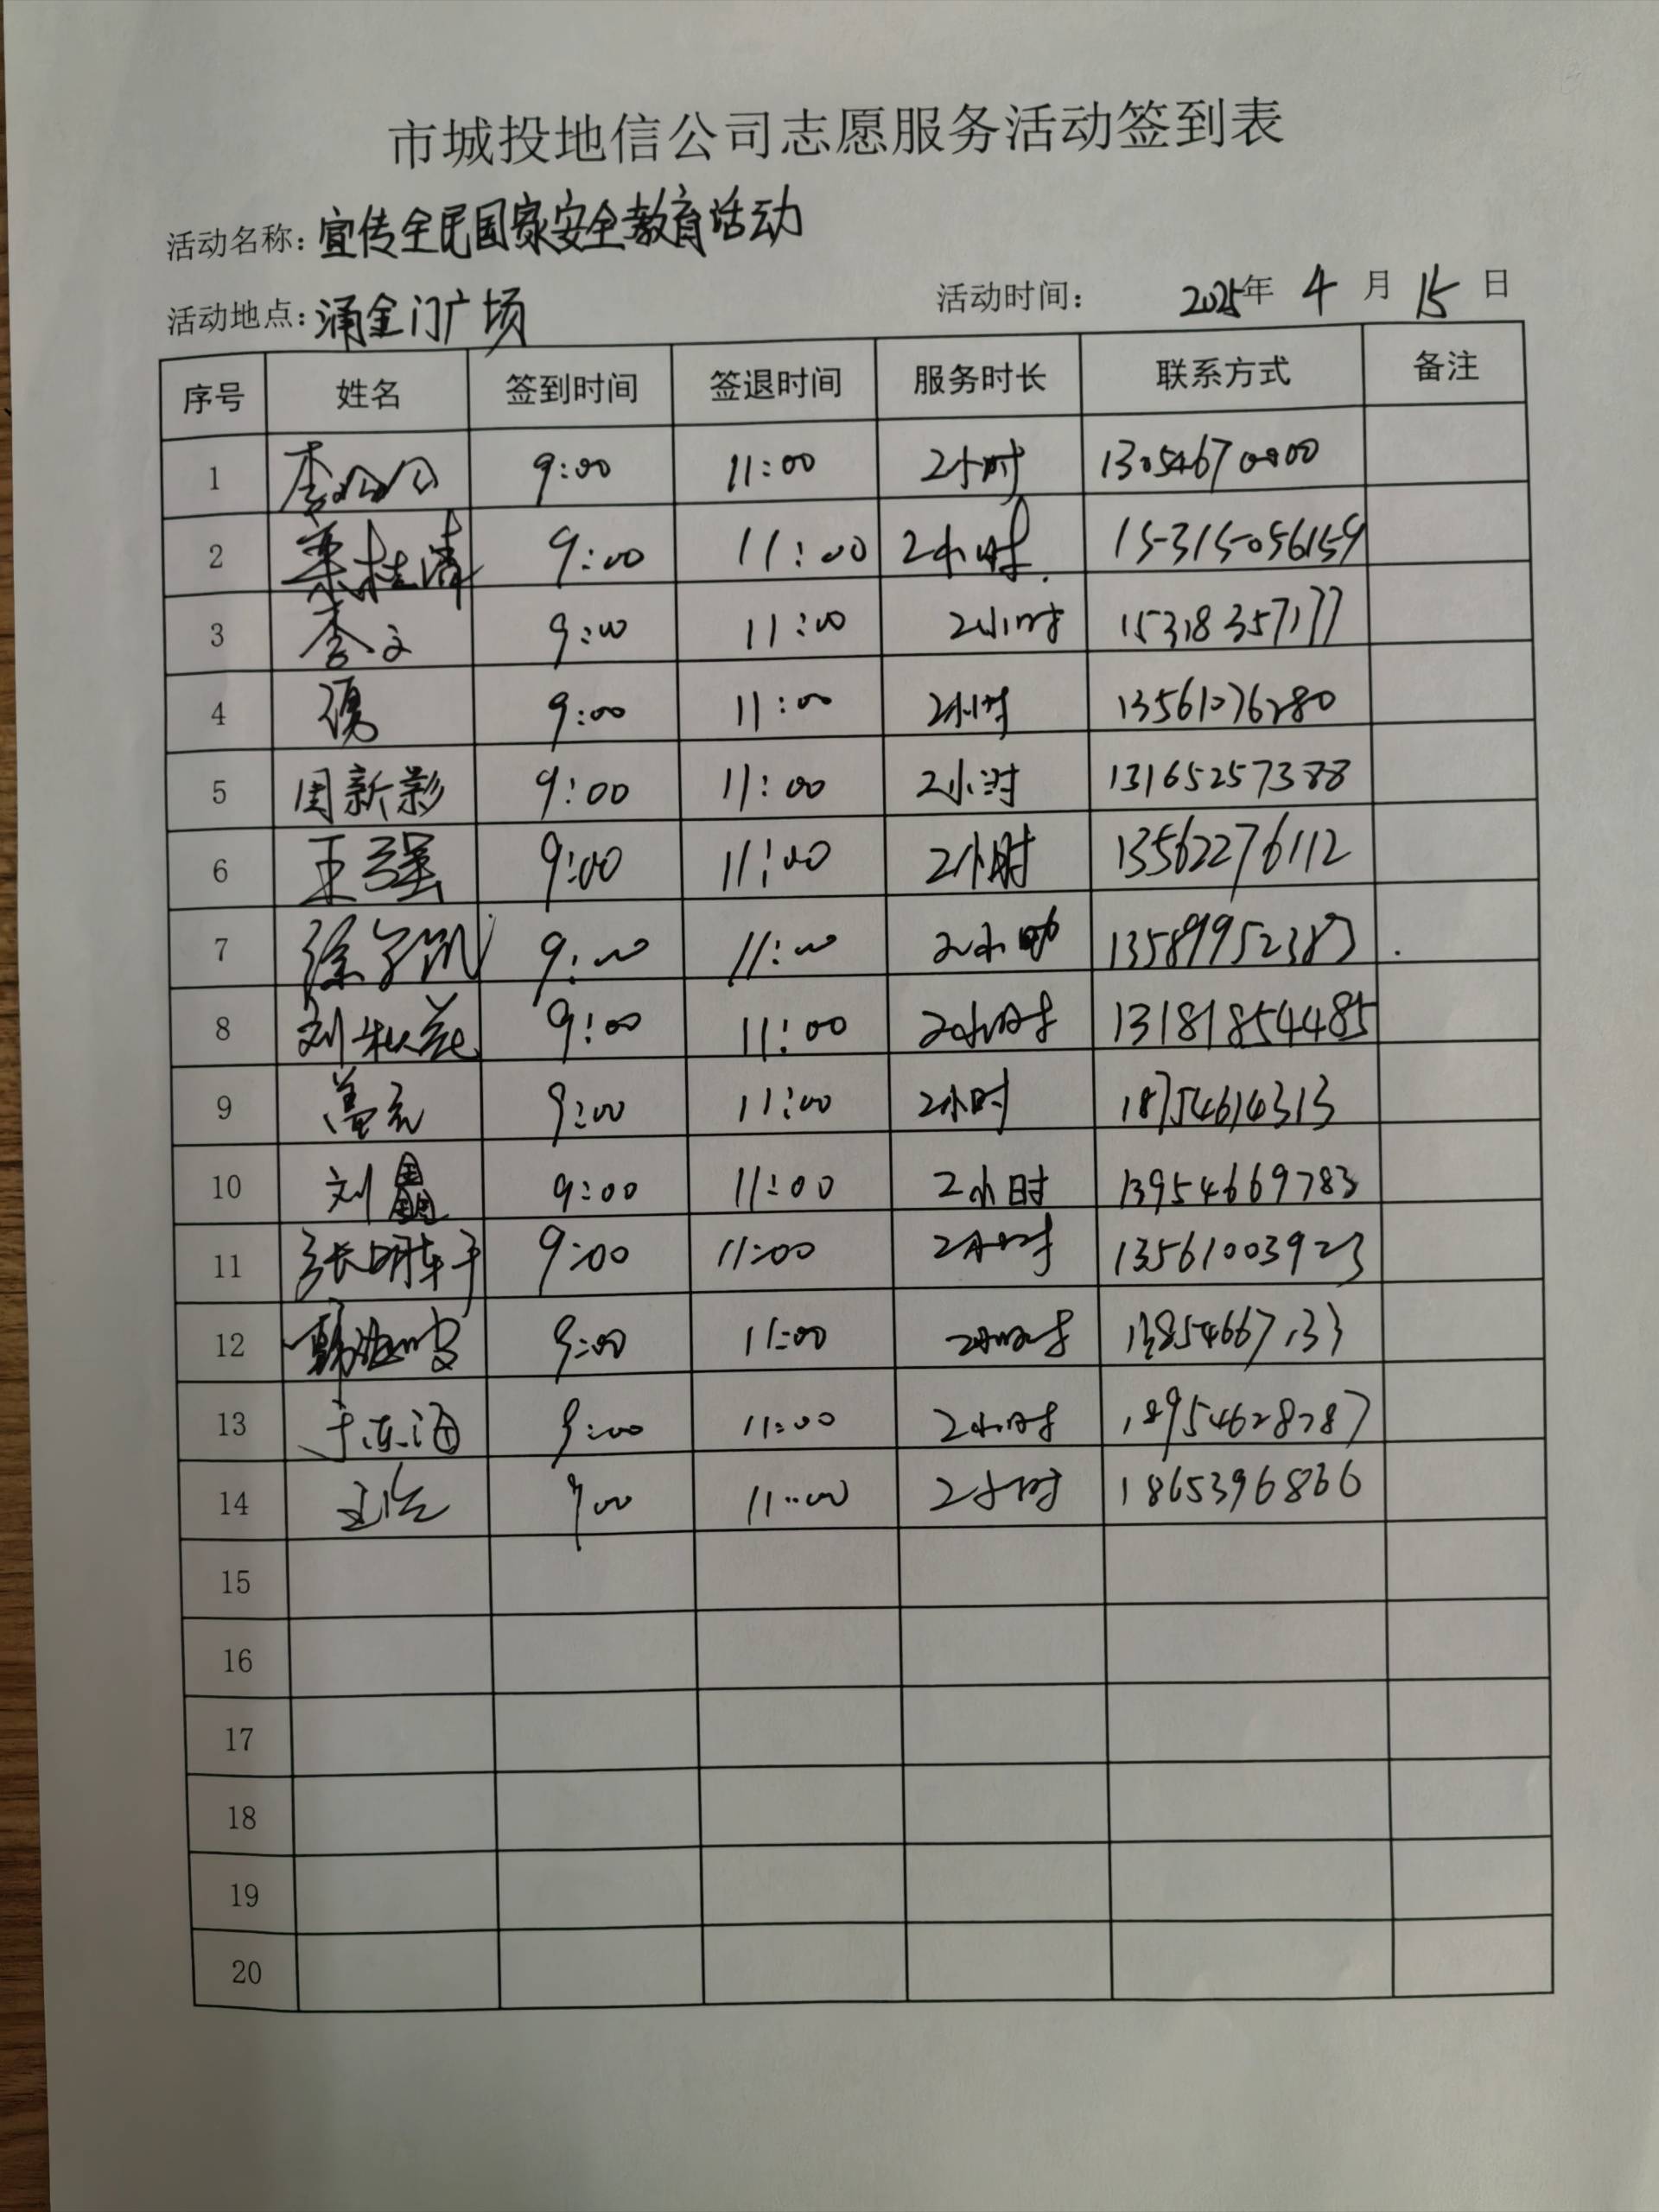 市城投地信公司志愿服务活动签到表
活动名称: 宣传全民国家安全教育活动
活动地点: 涌金门广场 活动时间: 2025年 4 月 15 日
序号 姓名 签到时间 签退时间 服务时长 联系方式 备注
1 9:00 11:00 2小时
2 9:00 11:00 2小时 15315056159
3 李文 9:00 11:00 2小时 15318357177
4 9:00 11:00 2小时 13561076280
5 周新影 9:00 11:00 2小时 13165257388
6 王强 9:00 11:00 2小时 13562276112
7 9:00 11:00 2小时 13589952383
8 9:00 11:00 2小时 13181854485
9 盖元 9:00 11:00 2小时 18754614313
10 刘 9:00 11:00 2小时 13954669783
11 9:00 11:00 2小时 13561003923
12 9:00 11:00 2小时 13854667133
13 于海 9:00 11:00 2小时 18954628787
14 9:00 11:00 2小时 18653968666
15
16
17
18
19
20